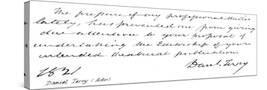 The pressure of my professional duties
lately, has prevented me from giving
due attention to your proposal of
undertaking the Editorship of your
intended Theatrical publication
Danl. Terry
1821
Daniel Terry (Actor)